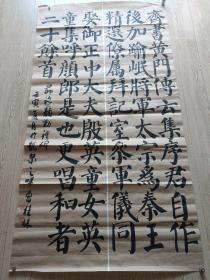 齊書黃門傳云集序君自作
後加踰岷將軍太宗為秦王
精選僚屬拜記室參軍儀同
娶御正中大夫殷英童女英
童集呼顏郎是也更唱和者
二十餘首